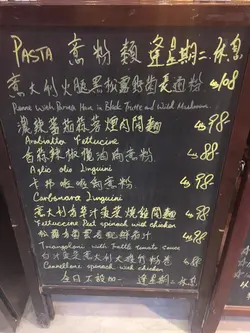 PASTA 意粉類 逢星期二.休息
意大利火腿黑松露野菌長通粉 $108
Penne with Parma Ham in Black Truffle and Wild Mushroom
濃辣蕃茄蒜茸煙肉闊麵 $98
Arabiatta Fettuccine
香蒜辣椒欖油扁意粉 $88
Aglio olio Linguini
卡邦尼扁意粉 $98
Carbonara Linguini
意大利青草汁菠菜燒雞闊麵 $98
Fettuccine Pest spinach with chicken
$98
Triangoloni with truffle tomato sauce
白汁菠菜意大利雞卷 $88
Cannellone spinach with chicken
逢星期二.休息